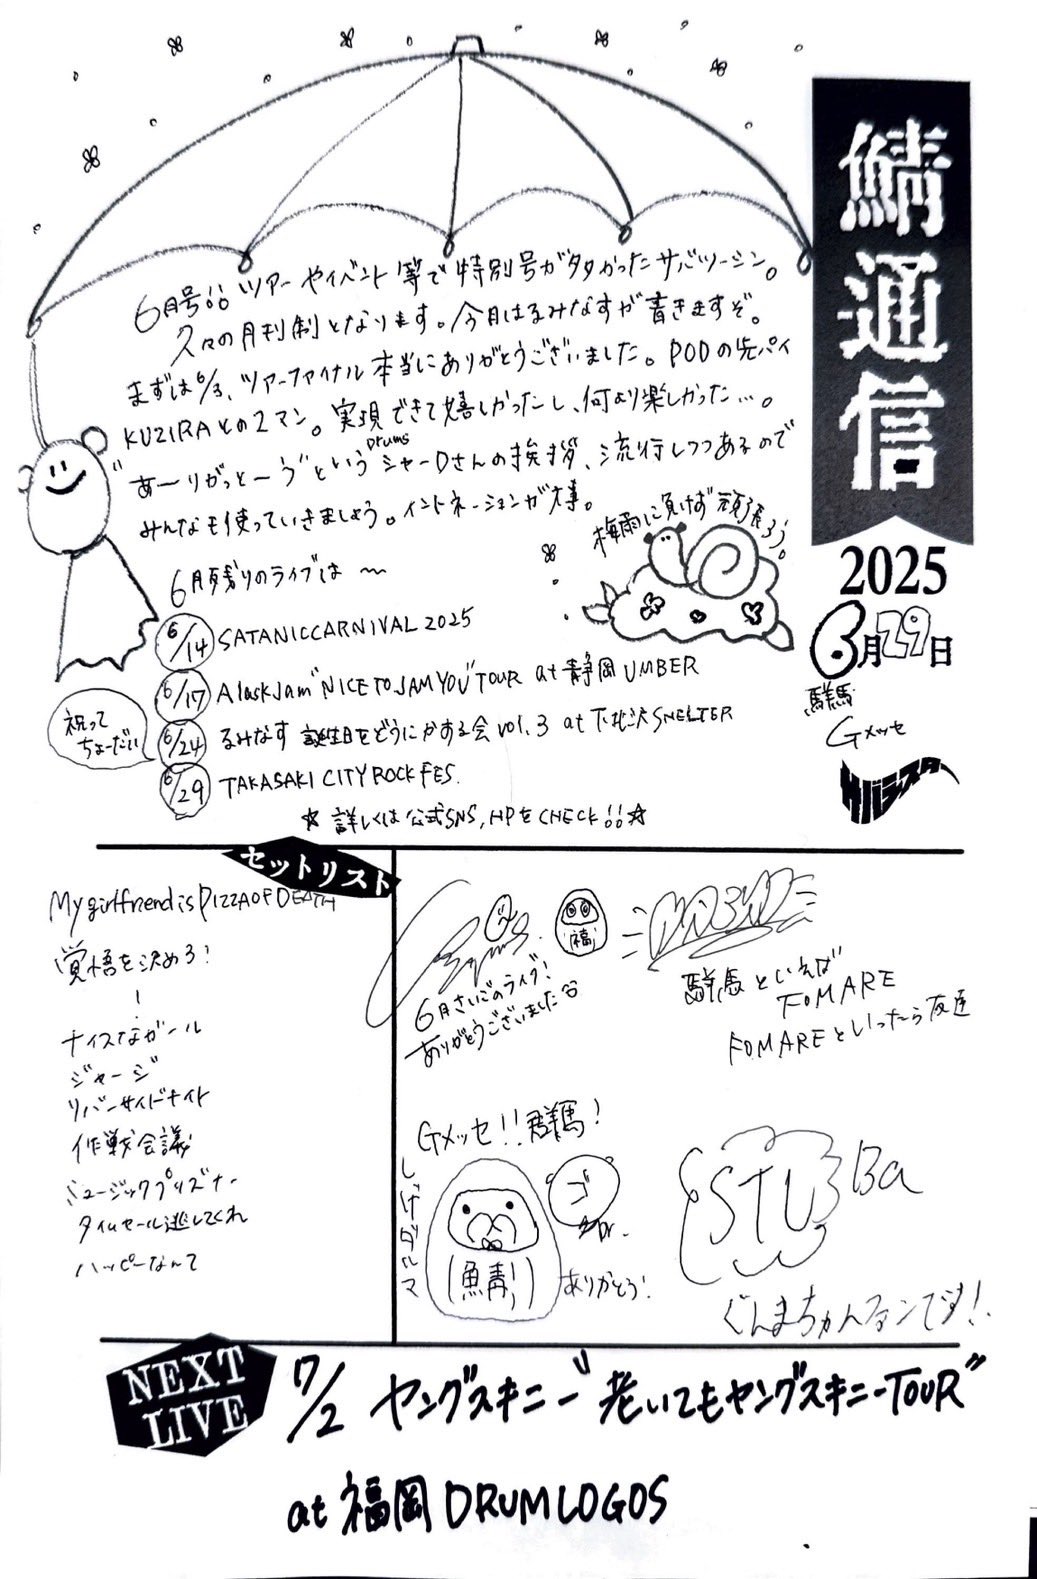 鯖通信
2025
6月29日
群馬
Gメッセ
サバシスター
6月号!! ツアーやイベント等で特別号が多かったサバツーシン。
久々の月刊制となります。今月はるみなすが書きますぞ。
まずは6/3、ツアーファイナル本当にありがとうございました。PODの先パイ
KUZIRAとの2マン。実現できて嬉しかったし、何より楽しかった…。
"あーりがっとーう"という drums シャーDさんの挨拶、流行しつつあるので
みんなも使っていきましょう。イントネーションが大事。
梅雨に負けず頑張ろう。
6月残りのライブは〜
6/14 SATANICCARNIVAL 2025
6/17 Alaskajam"NICE TO JAM YOU"TOUR at 静岡UMBER
祝ってちょーだい
6/24 るみなす 誕生日をどうにかする会 vol.3 at 下北沢SHELTER
6/29 TAKASAKI CITY ROCK FES.
☆ 詳しくは公式SNS,HPをCHECK!!☆
セットリスト
My girlfriend is PIZZA OF DEATH
覚悟を決めろ!
ナイスなガール
ジャージ
リバーサイドナイト
作戦会議
ミュージックプリズナー
タイムセール逃してくれ
ハッピーなんて
福
6月さいごのライブ!
ありがとうございました
群馬といえば
FOMARE
FOMAREといったら友達
Gメッセ!!群馬!
しげダルマ
ゴ
Dr.
鯖
ありがとう!
STU Ba
ぐんまちゃんファンです!
NEXT
LIVE
7/2 ヤングスキニー"老いてもヤングスキニーTOUR"
at 福岡 DRUM LOGOS